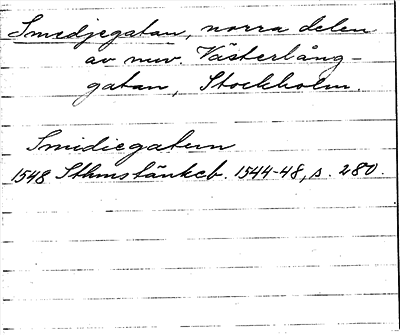 Smedjegatan, norra delen
av nuv. Västerlång-
gatan, Stockholm.
Smidiegatun
1548 Sthms tänkeb. 1544-48, s. 280.